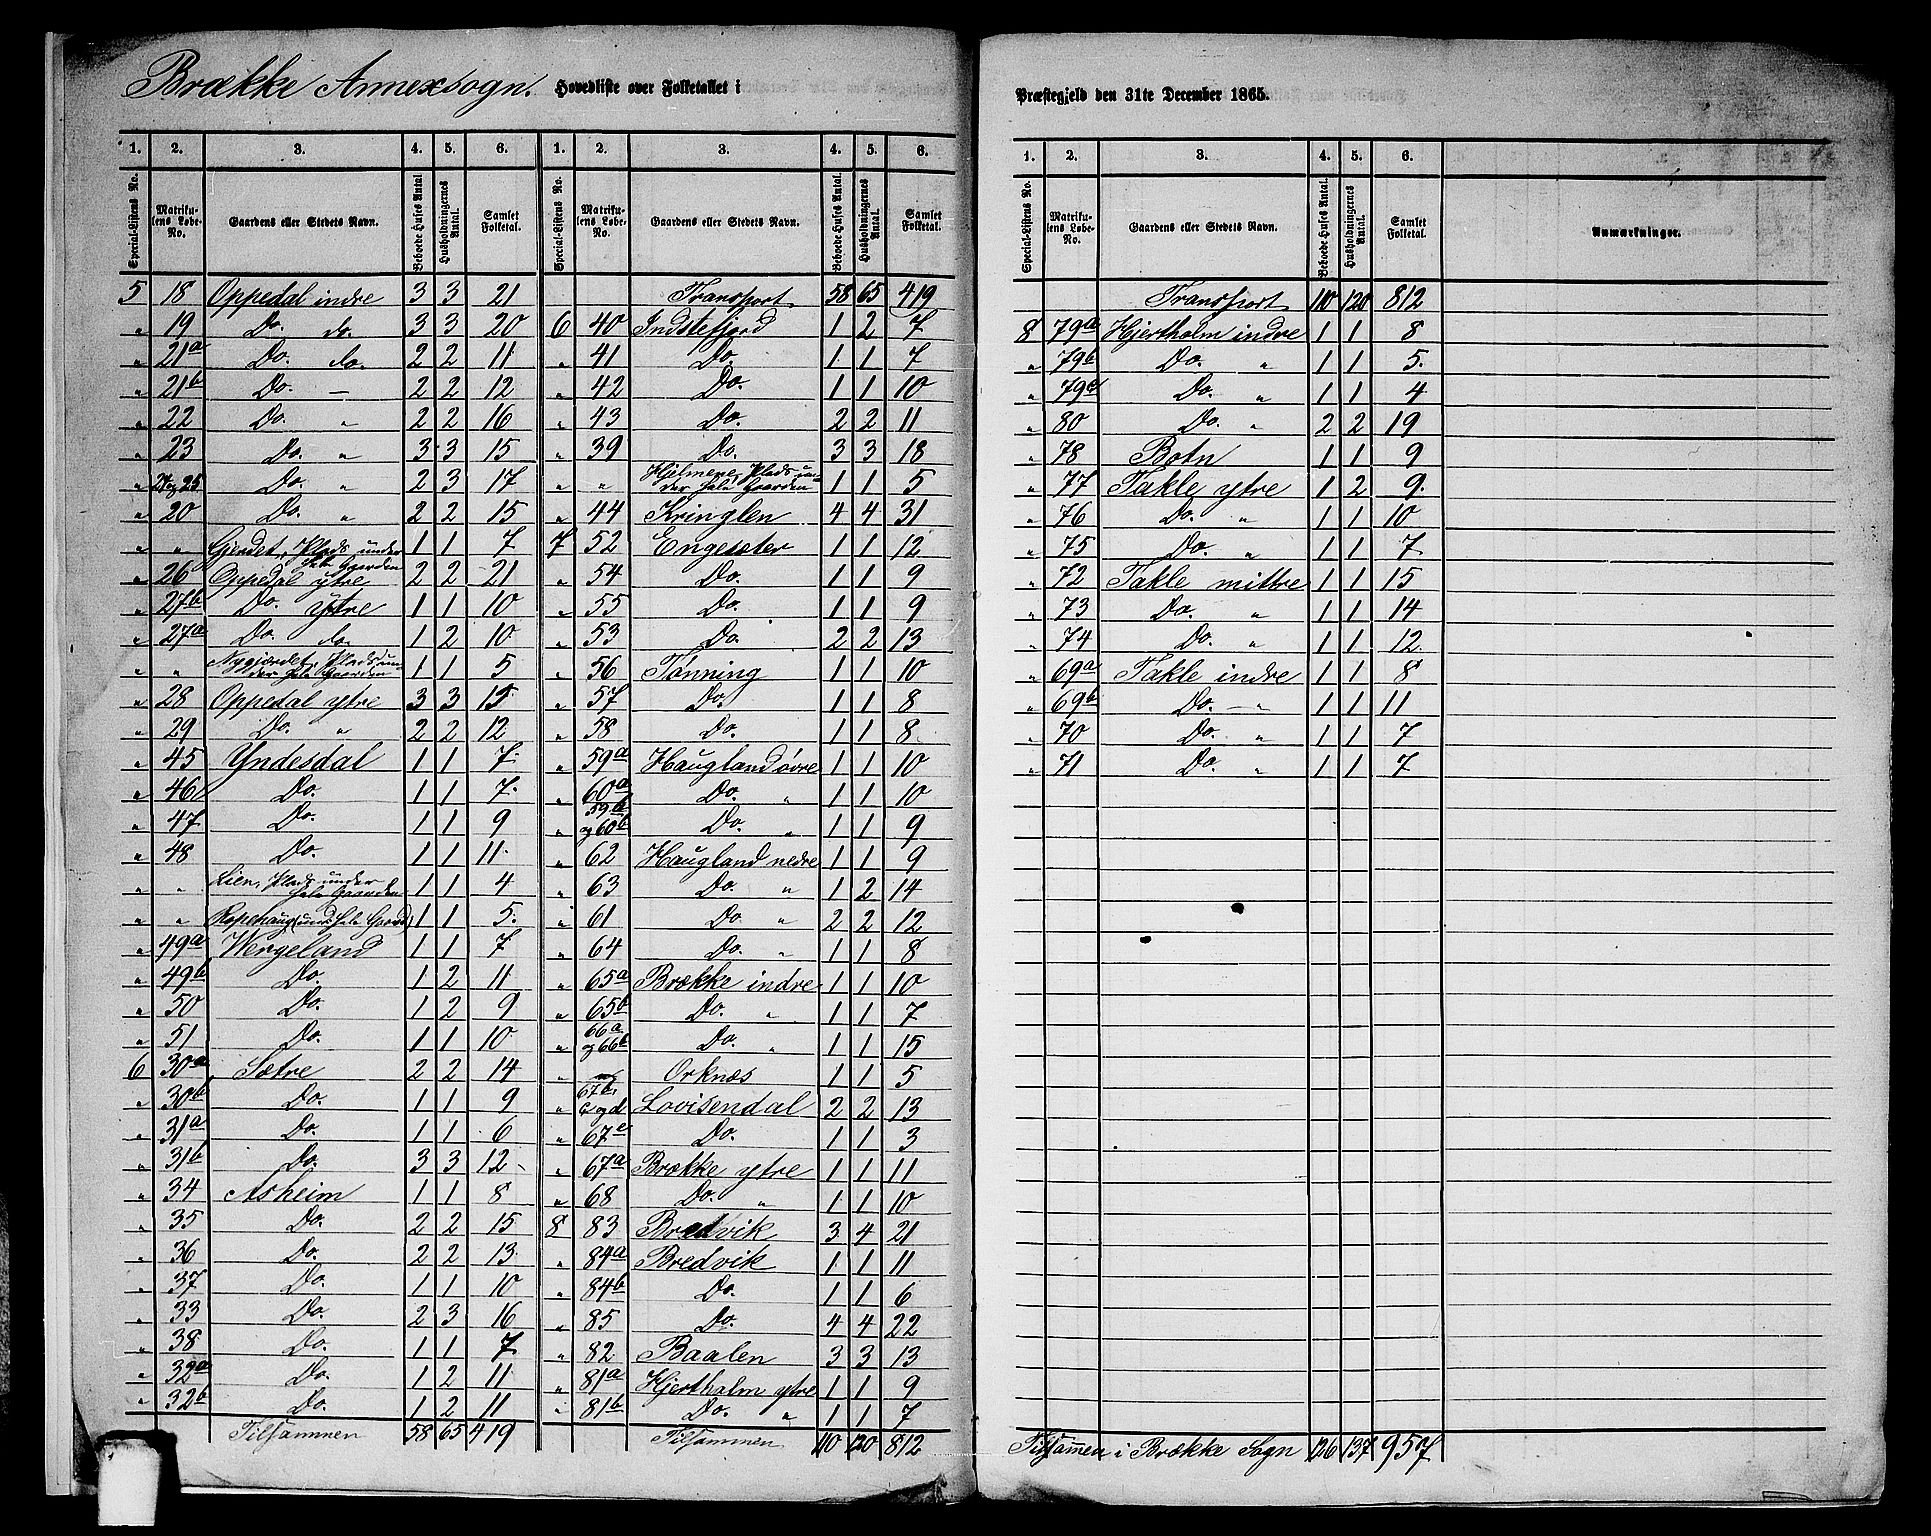 Brække Annexsogn. Hovedliste over Folketallet i
1. 2. 3. 4. 5. 6. 1. 2. 3. 4. 5. 6.
Special-Listens No. Matrikulens Løbe-No. Gaardens eller Stedets Navn. Beboede Huses Antal Husholdningernes Antal. Samlet Folketal. Special-Listens No. Matrikulens Løbe-No. Gaardens eller Stedets Navn. Beboede Huses Antal. Husholdningernes Antal. Samlet Folketal.
5 18 Oppedal indre 3 3 21
" 19 Do. do. 3 3 20
" 21a Do. do. 2 2 11
" 21b Do. — 2 2 12
" 22 Do. " 2 2 16
" 23 Do. " 3 3 15
" 24 og 25 Do. " 2 3 17
" 20 Do. " 2 2 15
" " Gjerdet, Plads under hele Gaarden 1 1 7
" 26 Oppedal ytre 2 2 21
" 27b Do. ytre 1 1 10
" 27a Do. do. 1 2 10
" " Nygjerdet, Plads under hele Gaarden 1 1 5
" 28 Oppedal ytre 3 3 15
" 29 Do. " 2 2 12
" 45 Yndesdal 1 1 7
" 46 Do. 1 1 7
" 47 Do. 1 1 9
" 48 Do. 1 1 11
" " Lien, Plads under hele Gaarden 1 1 4
" " Ropehaug (und. hele Gaard) 1 1 5.
" 49a Wergeland 1 1 7
" 49b Do. 1 2 11
" 50 Do. 1 2 9
" 51 Do. 1 1 10
6 30a Sætre 2 2 14
" 30b Do. 1 1 9
" 31a Do. 1 1 6
" 31b Do. 3 3 12
" 34 Asheim 1 1 8
" 35 Do. 2 2 15
" 36 Do. 2 2 13
" 37 Do. 1 1 10
" 33 Do. 2 3 16
" 38 Do. 1 1 7
" 32a Do. 1 2 11
" 32b Do. 1 2 11
Tilsammen 58 65 419
Transport 58 65 419
6 40 Indstefjord 1 2 7
" 41 Do. 1 1 7
" 42 Do. 1 1 10
" 43 Do. 2 2 11
" 39 Do. 3 3 18
" " Hjelmene, Plads under hele Gaarden 1 1 5
" 44 Kringlen 4 4 31
7 52 Engesæter 1 1 12
" 54 Do. 1 1 9
" 55 Do. 1 1 9
" 53 Do. 2 2 13
" 56 Tønning 1 1 10
" 57 Do. 1 1 8
" 58 Do. 1 1 8
" 59a Haugland øvre 1 1 10
" 60a Do. " 1 1 10
" 59b og 60b Do. " 1 1 9
" 62 Haugland nedre 1 1 9
" 63 Do. " 1 2 14
" 61 Do. " 2 2 12
" 64 Do. " 1 1 8
" 65a Brække indre 1 1 10
" 65b Do. " 1 1 7
" 66a og 66b Do. " 1 1 15
" " Orknæs 1 1 5
" 67b, c og d Lovisendal 2 2 13
" 67e Do. 1 1 3
" 67a Brække ytre 1 1 11
" 68 Do. " 1 1 10
8 83 Bredvik 3 4 21
" 84a Bredvik 1 1 11
" 84b Do. 1 1 6
" 85 Do. 4 4 22
" 82 Baalen 3 3 13
" 81a Hjertholm ytre 1 1 9
" 81b Do. " 1 1 7
Tilsammen 110 120 812
Præstegjeld den 31te December 1865.
1. 2. 3. 4. 5. 6.
Special-Listens No. Matrikulens Løbe-No. Gaardens eller Stedets Navn. Beboede Huses Antal. Husholdningernes Antal. Samlet Folketal. Anmærkninger.
Transport 110 120 812
8 79a Hjertholm indre 1 1 8
" 79b Do. " 1 1 5.
" 79c Do. " 1 1 4
" 80 Do. " 2 2 19
" 78 Botn 1 1 9
" 77 Takle ytre 1 2 9.
" 76 Do. " 1 1 10
" 75 Do. " 1 1 7
" 72 Takle mittre 1 1 15
" 73 Do. " 1 1 14
" 74 Do. " 1 1 12
" 69a Takle indre 1 1 8
" 69b Do. — " 1 1 11
" 70 Do. " 1 1 7
" 71 Do. " 1 1 7
Tilsammen i Brække Sogn 126 137 957